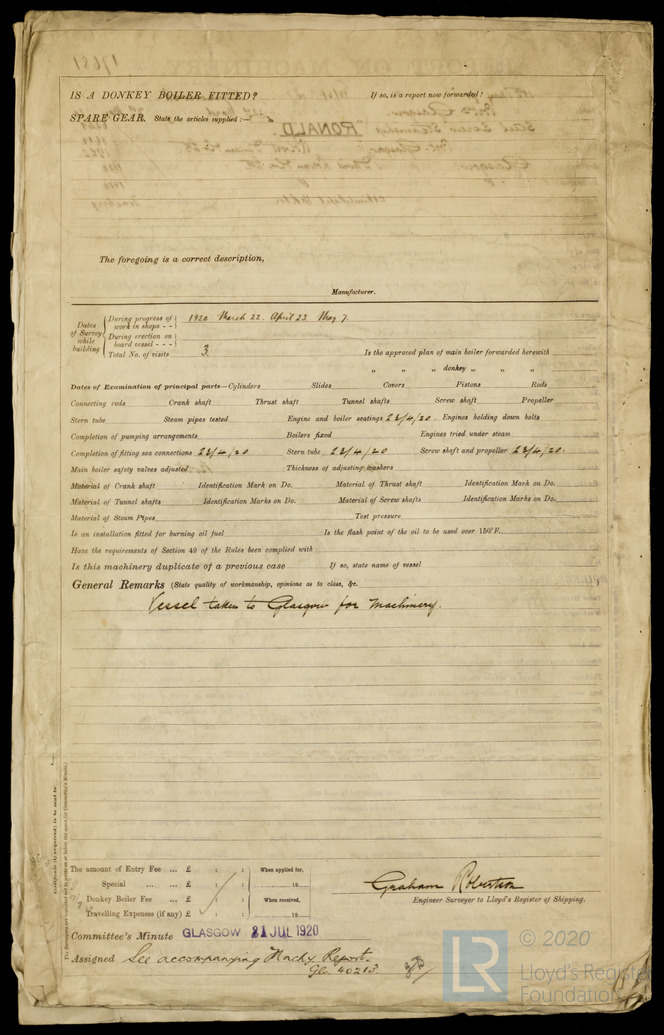 IS A DONKEY BOILER FITTED? If so, is a report now forwarded?
SPARE GEAR. State the articles supplied:—
"RONALD"
The foregoing is a correct description,
Manufacturer.
Dates of Survey while building
During progress of work in shops - - 1920 March 22. April 23 May 7.
During erection on board vessel - - -
Total No. of visits 3. Is the approved plan of main boiler forwarded herewith
" " " donkey " " "
Dates of Examination of principal parts—Cylinders Slides Covers Pistons Rods
Connecting rods Crank shaft Thrust shaft Tunnel shafts Screw shaft Propeller
Stern tube Steam pipes tested Engine and boiler seatings 23/4/20. Engines holding down bolts
Completion of pumping arrangements Boilers fixed Engines tried under steam
Completion of fitting sea connections 23/4/20 Stern tube 23/4/20 Screw shaft and propeller 23/4/20.
Main boiler safety valves adjusted Thickness of adjusting washers
Material of Crank shaft Identification Mark on Do. Material of Thrust shaft Identification Mark on Do.
Material of Tunnel shafts Identification Marks on Do. Material of Screw shafts Identification Marks on Do.
Material of Steam Pipes Test pressure
Is an installation fitted for burning oil fuel Is the flash point of the oil to be used over 150°F.
Have the requirements of Section 49 of the Rules been complied with
Is this machinery duplicate of a previous case If so, state name of vessel
General Remarks (State quality of workmanship, opinions as to class, &c.
Vessel taken to Glasgow for Machinery.
The amount of Entry Fee ... £ : : When applied for,
Special ... ... £ : : 19
Donkey Boiler Fee ... £ : : When received,
Travelling Expenses (if any) £ : : 19
Graham Robertson
Engineer Surveyor to Lloyd's Register of Shipping.
Committee's Minute GLASGOW 21 JUL 1920
Assigned See accompanying Machy Report.
Gls. 40213
LR © 2020
Lloyd's Register
Foundation